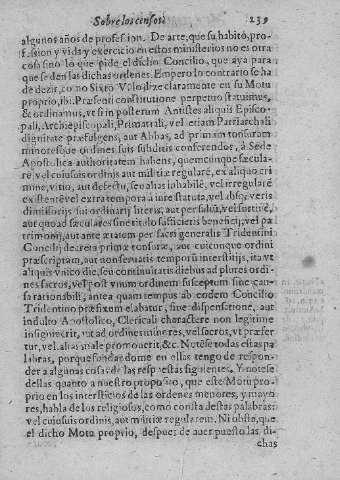 Sobre los censos. 239
algunos años de profession. De arte, que su habito, pro-
fession y vida y exercicio en estos ministerios no es otra
cosa sino lo que pide el dicho Concilio, que aya para
que se den las dichas ordenes. Empero lo contrario se ha
de dezir, co no Sixto V. lo dize claramente en su Motu
proprio, ibi: Præsenti constitutione perpetuo statuimus,
& ordinamus, vt si in posterum Antistes aliquis Episco-
pali, Archiepiscopali, Primatiali, vel etiam Patriarchali
dignitate præfulgens, aut Abbas, ad primam tonsuram
minoresque ordines suis subditis conferendos, à Sede
Apostolica authoritatem habens, quemcunque sæcula-
rē vel cuiusuis ordinis aut militiæ regularē, ex aliquo cri
mine, vitio, aut defectu, seu alias inhabilē, vel irregularē
existentē vel extra tempora à iure statuta, vel absq; veris
dimissorijs sui ordinarij literis, aut per saltū, vel furtiuē,
aut quo ad sæculares sine titulo sufficientis beneficij, vel pa
trimonij, aut ante ætatem per sacri generalis Tridentini
Concilij decreta primæ tonsuræ, aut cuicunque ordini
præscriptam, aut non seruatis temporū interstitijs, ita vt
aliquis vnico die, seu continuatis diebus ad plures ordi-
nes sacros, vel post vnum ordinem susceptum sine cau-
sa rationabili, antea quam tempus ab eodem Concilio
Tridentino præfixum elabatur, sine dispensatione, aut
indulto Apostolico, Clericali charactere non legitime
insignierit, vut ad ordines minores, vel sacros, vt præfer
tur, vel alias male promouerit, &c. Notese todas estas pa
labras, porque fundandome en ellas tengo de respon-
der a algunas cosas de las respuestas siguientes. Y notese
dellas quanto a nuestro proposito, que este Motu pro-
prio en los intersticios de las ordenes menores, y mayo
res, habla de los religiosos, como consta destas palabras:
vel cuiusuis ordinis, aut militiæ regularem. Ni obsta, que
el dicho Motu proprio, despues de auer puesto las di-
chas